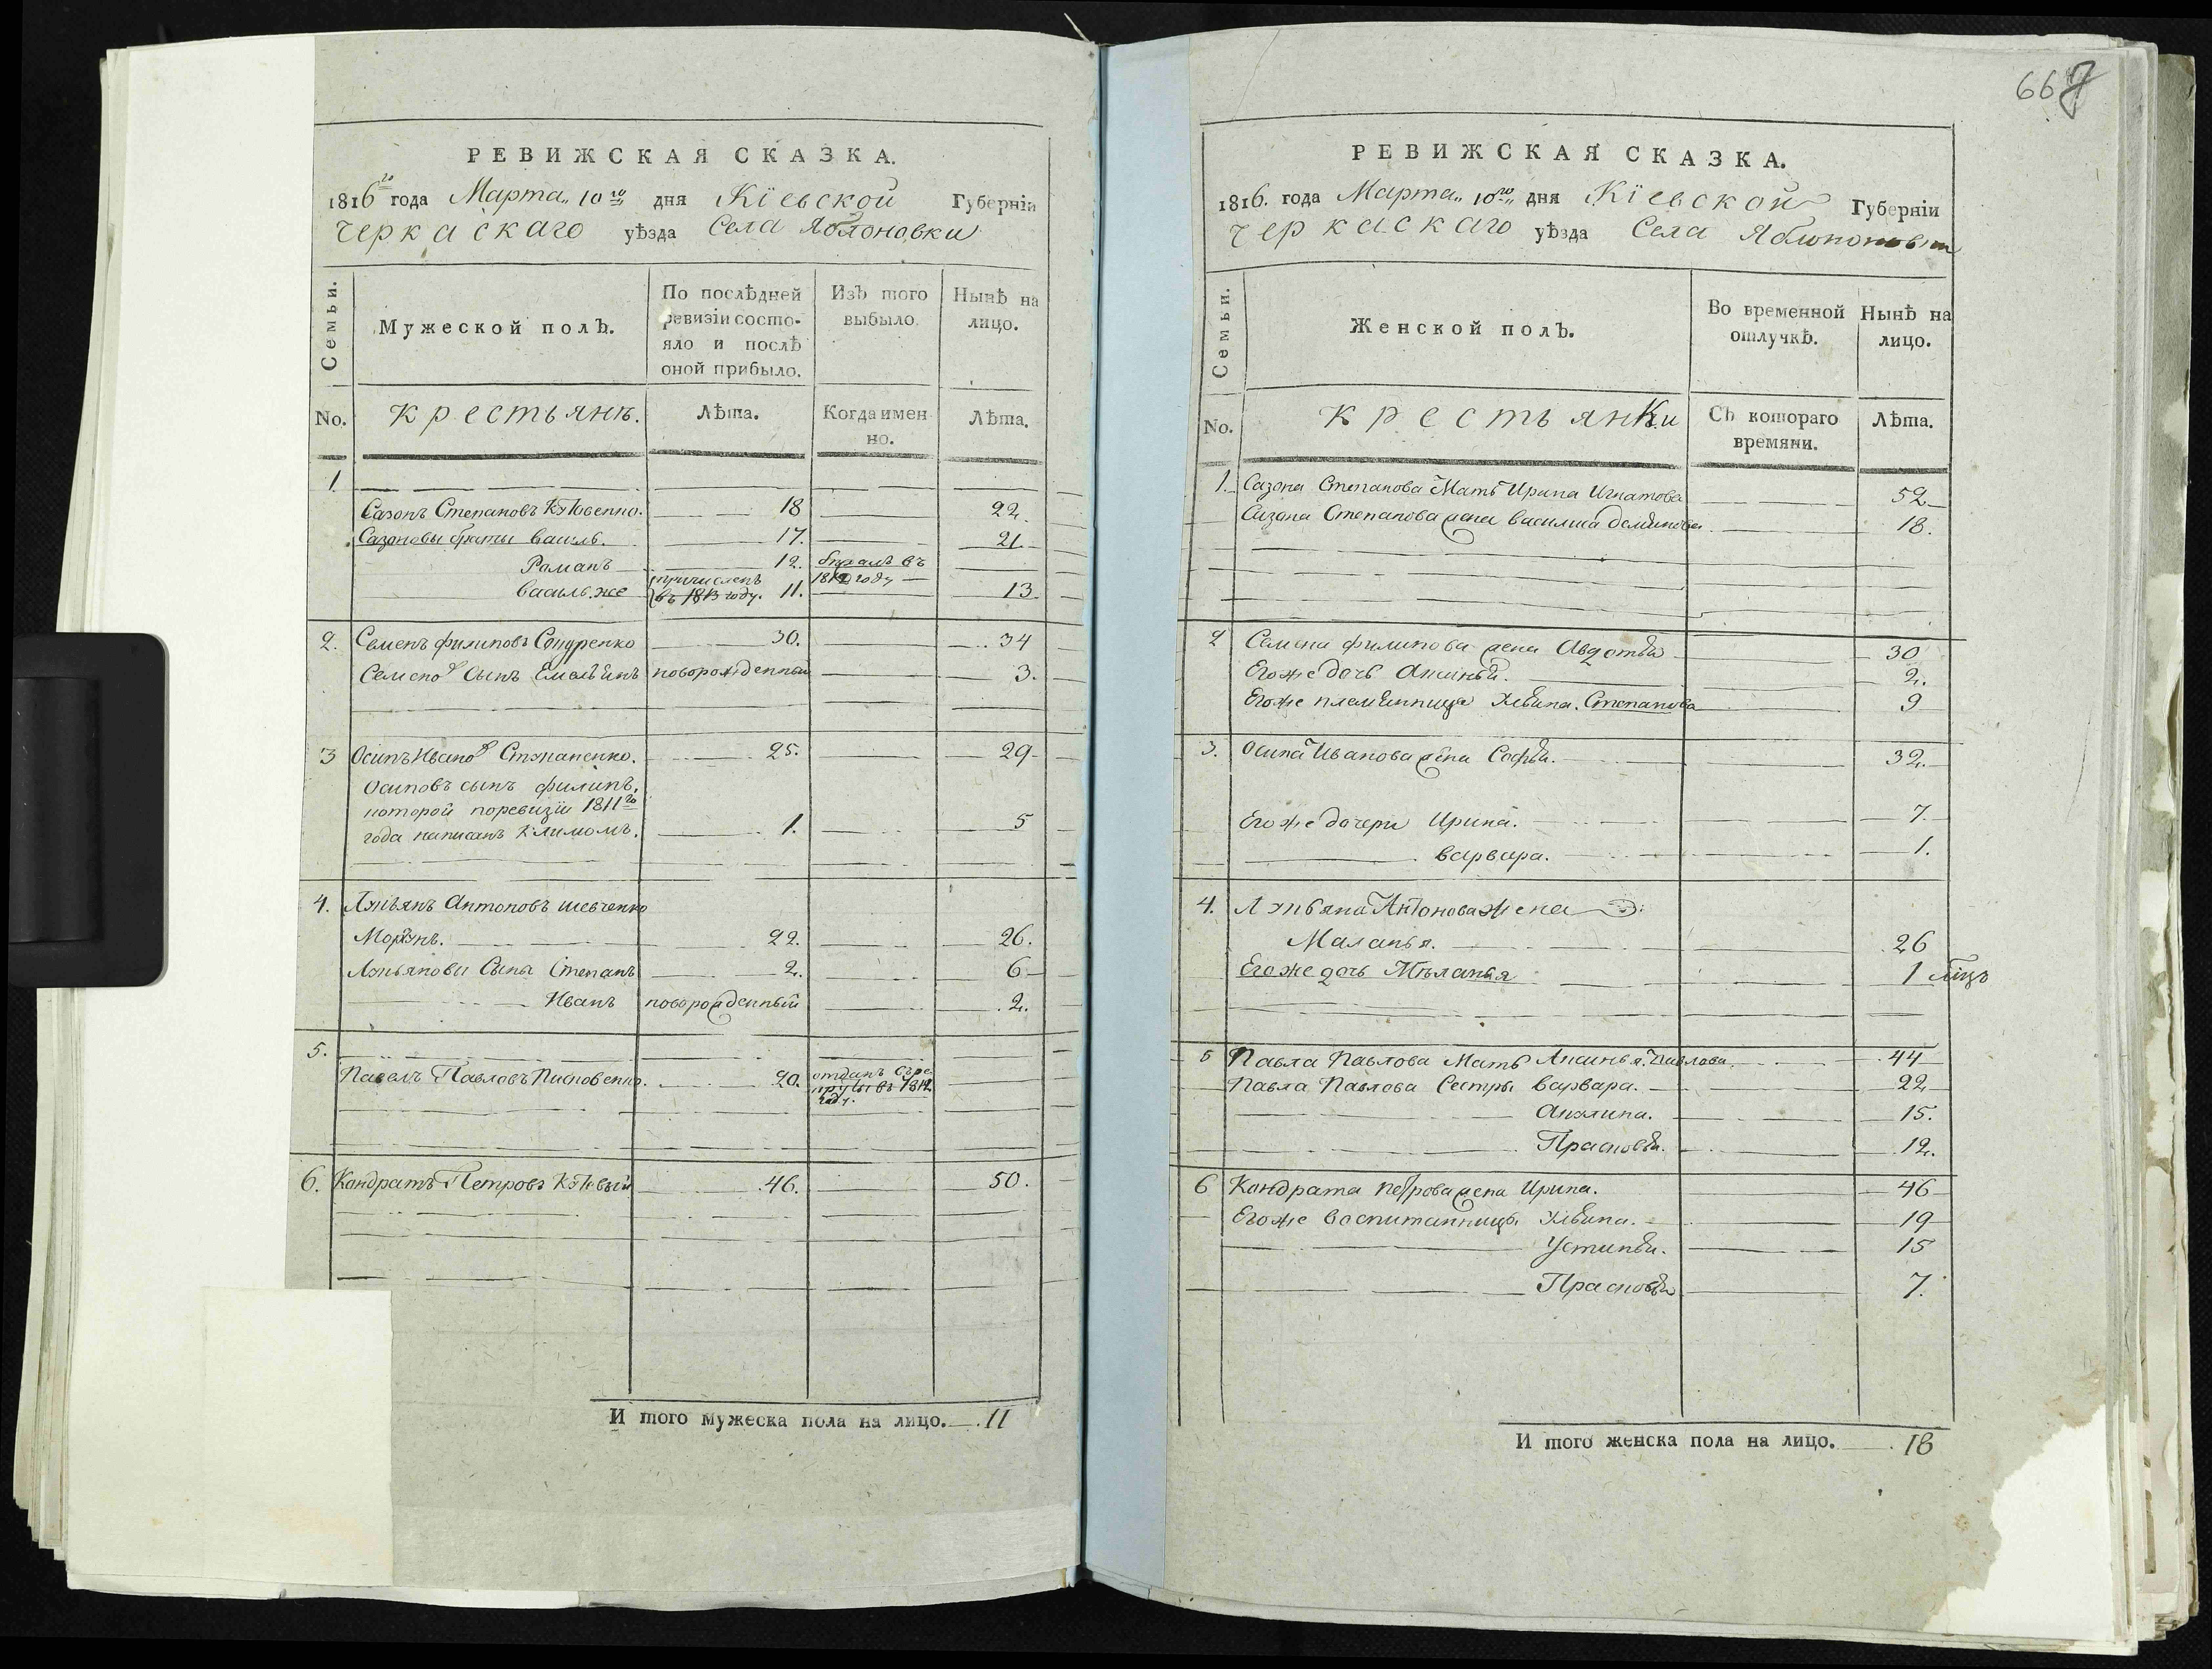 667
РЕВИЖСКАЯ СКАЗКА.
1816го года Марта 10го дня Кїевской Губернїи
Черкаскаго уѣзда Села Яблоновки
Семьи.
Мужеской полъ.
По послѣдней ревизїи состо-
яло и послѣ
оной прибыло.
Изъ того
выбыло.
Нынѣ на
лицо.
No. Крестьянъ. Лѣта. Когда имен-
но. Лѣта.
1.
Сазонъ Степановъ 18 22.
Сазоновы браты Василь. 17. 21.
Романъ 12. въ
1812 году
Василь же причисленъ
въ 1813 году. 11. 13
2. Семенъ Филиповъ 30. 34
Семеновъ Сынъ Емельянъ новорожденный 3.
3 Осипъ Ивановъ Степаненко. 25. 29
Осиповъ сынъ Филипъ,
которой по ревизїи 1811го
года написанъ Климомъ. 1. 5
4. Лукьянъ Антоновъ Шевченко
22. 26.
Лукьяновы Сыны Степанъ 2. 6
Иванъ новорожденный 2.
5.
Павелъ Павловъ 20. отданъ въ ре-
круты въ 1812
году.
6. Кондратъ Петровъ 46. 50.
И того мужеска пола на лицо. 11
РЕВИЖСКАЯ СКАЗКА.
1816. года Марта 10го дня Кїевской Губернїи
Черкаскаго уѣзда Села Яблоновки
Семьи.
Женской полъ.
Во временной
отлучкѣ.
Нынѣ на
лицо.
No. Крестьянки Съ котораго
времяни. Лѣта.
1. Сазона Степанова Мать Ирина Игнатова 52
Сазона Степанова жена Василиса 18.
2 Семена Филипова жена Авдотья 30
Егоже дочь Ананья. 2.
Егоже племянница Ульяна Степанова 9
3. Осипа Иванова жена Софья. 32.
Егоже дочери Ирина. 7.
Варвара. 1.
4. Лукьяна Антонова жена
Маланья. 26
Егоже дочь Мѣланья 1
5 Павла Павлова Мать Ананья Павлова 44
Павла Павлова Сестры Варвара. 22
Акулина. 15.
Прасковья. 12.
6 Кондрата Петрова жена Ирина. 46
Егоже воспитанницы Ульяна. 19
Устинья. 15
Прасковья 7.
И того женска пола на лицо. 18